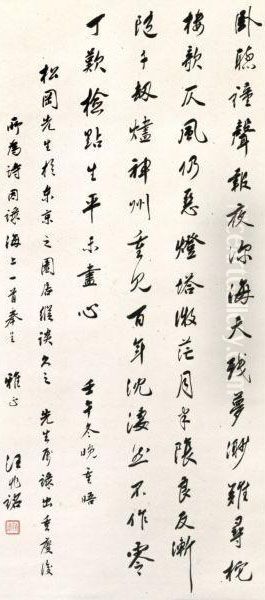 臥聽鐘聲報夜深海天殘夢渺難尋柁
樓欹仄風仍惡燈塔微茫月半陰良友漸
隨千劫燼神州重見百年沈淒然不作零
丁歎檢點生平未盡心 壬午冬晚重晤
松岡先生於東京之園居縱談久之 先生 出重慶後
所為詩因 海上一首奉呈 雅正 汪兆銘